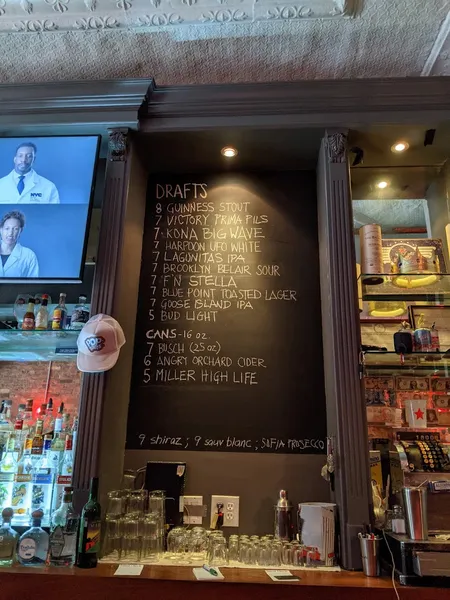 NYC
DRAFTS
8 GUINNESS STOUT
7 VICTORY PRIMA PILS
7 KONA BIG WAVE
7 HARPOON UFO WHITE
7 LAGUNITAS IPA
7 BROOKLYN BELAIR SOUR
7 F'N STELLA
7 BLUE POINT TOASTED LAGER
7 GOOSE ISLAND IPA
5 BUD LIGHT
CANS - 16 oz
7 BUSCH (25 oz)
6 ANGRY ORCHARD CIDER
5 MILLER HIGH LIFE
9 shiraz ; 9 sauv blanc ; SOFIA PROSECCO